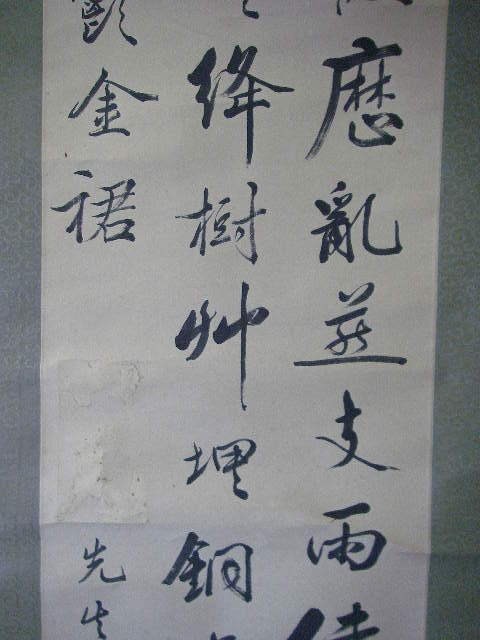 㦄亂燕支雨
絳樹艸埋銅
金裙
先生